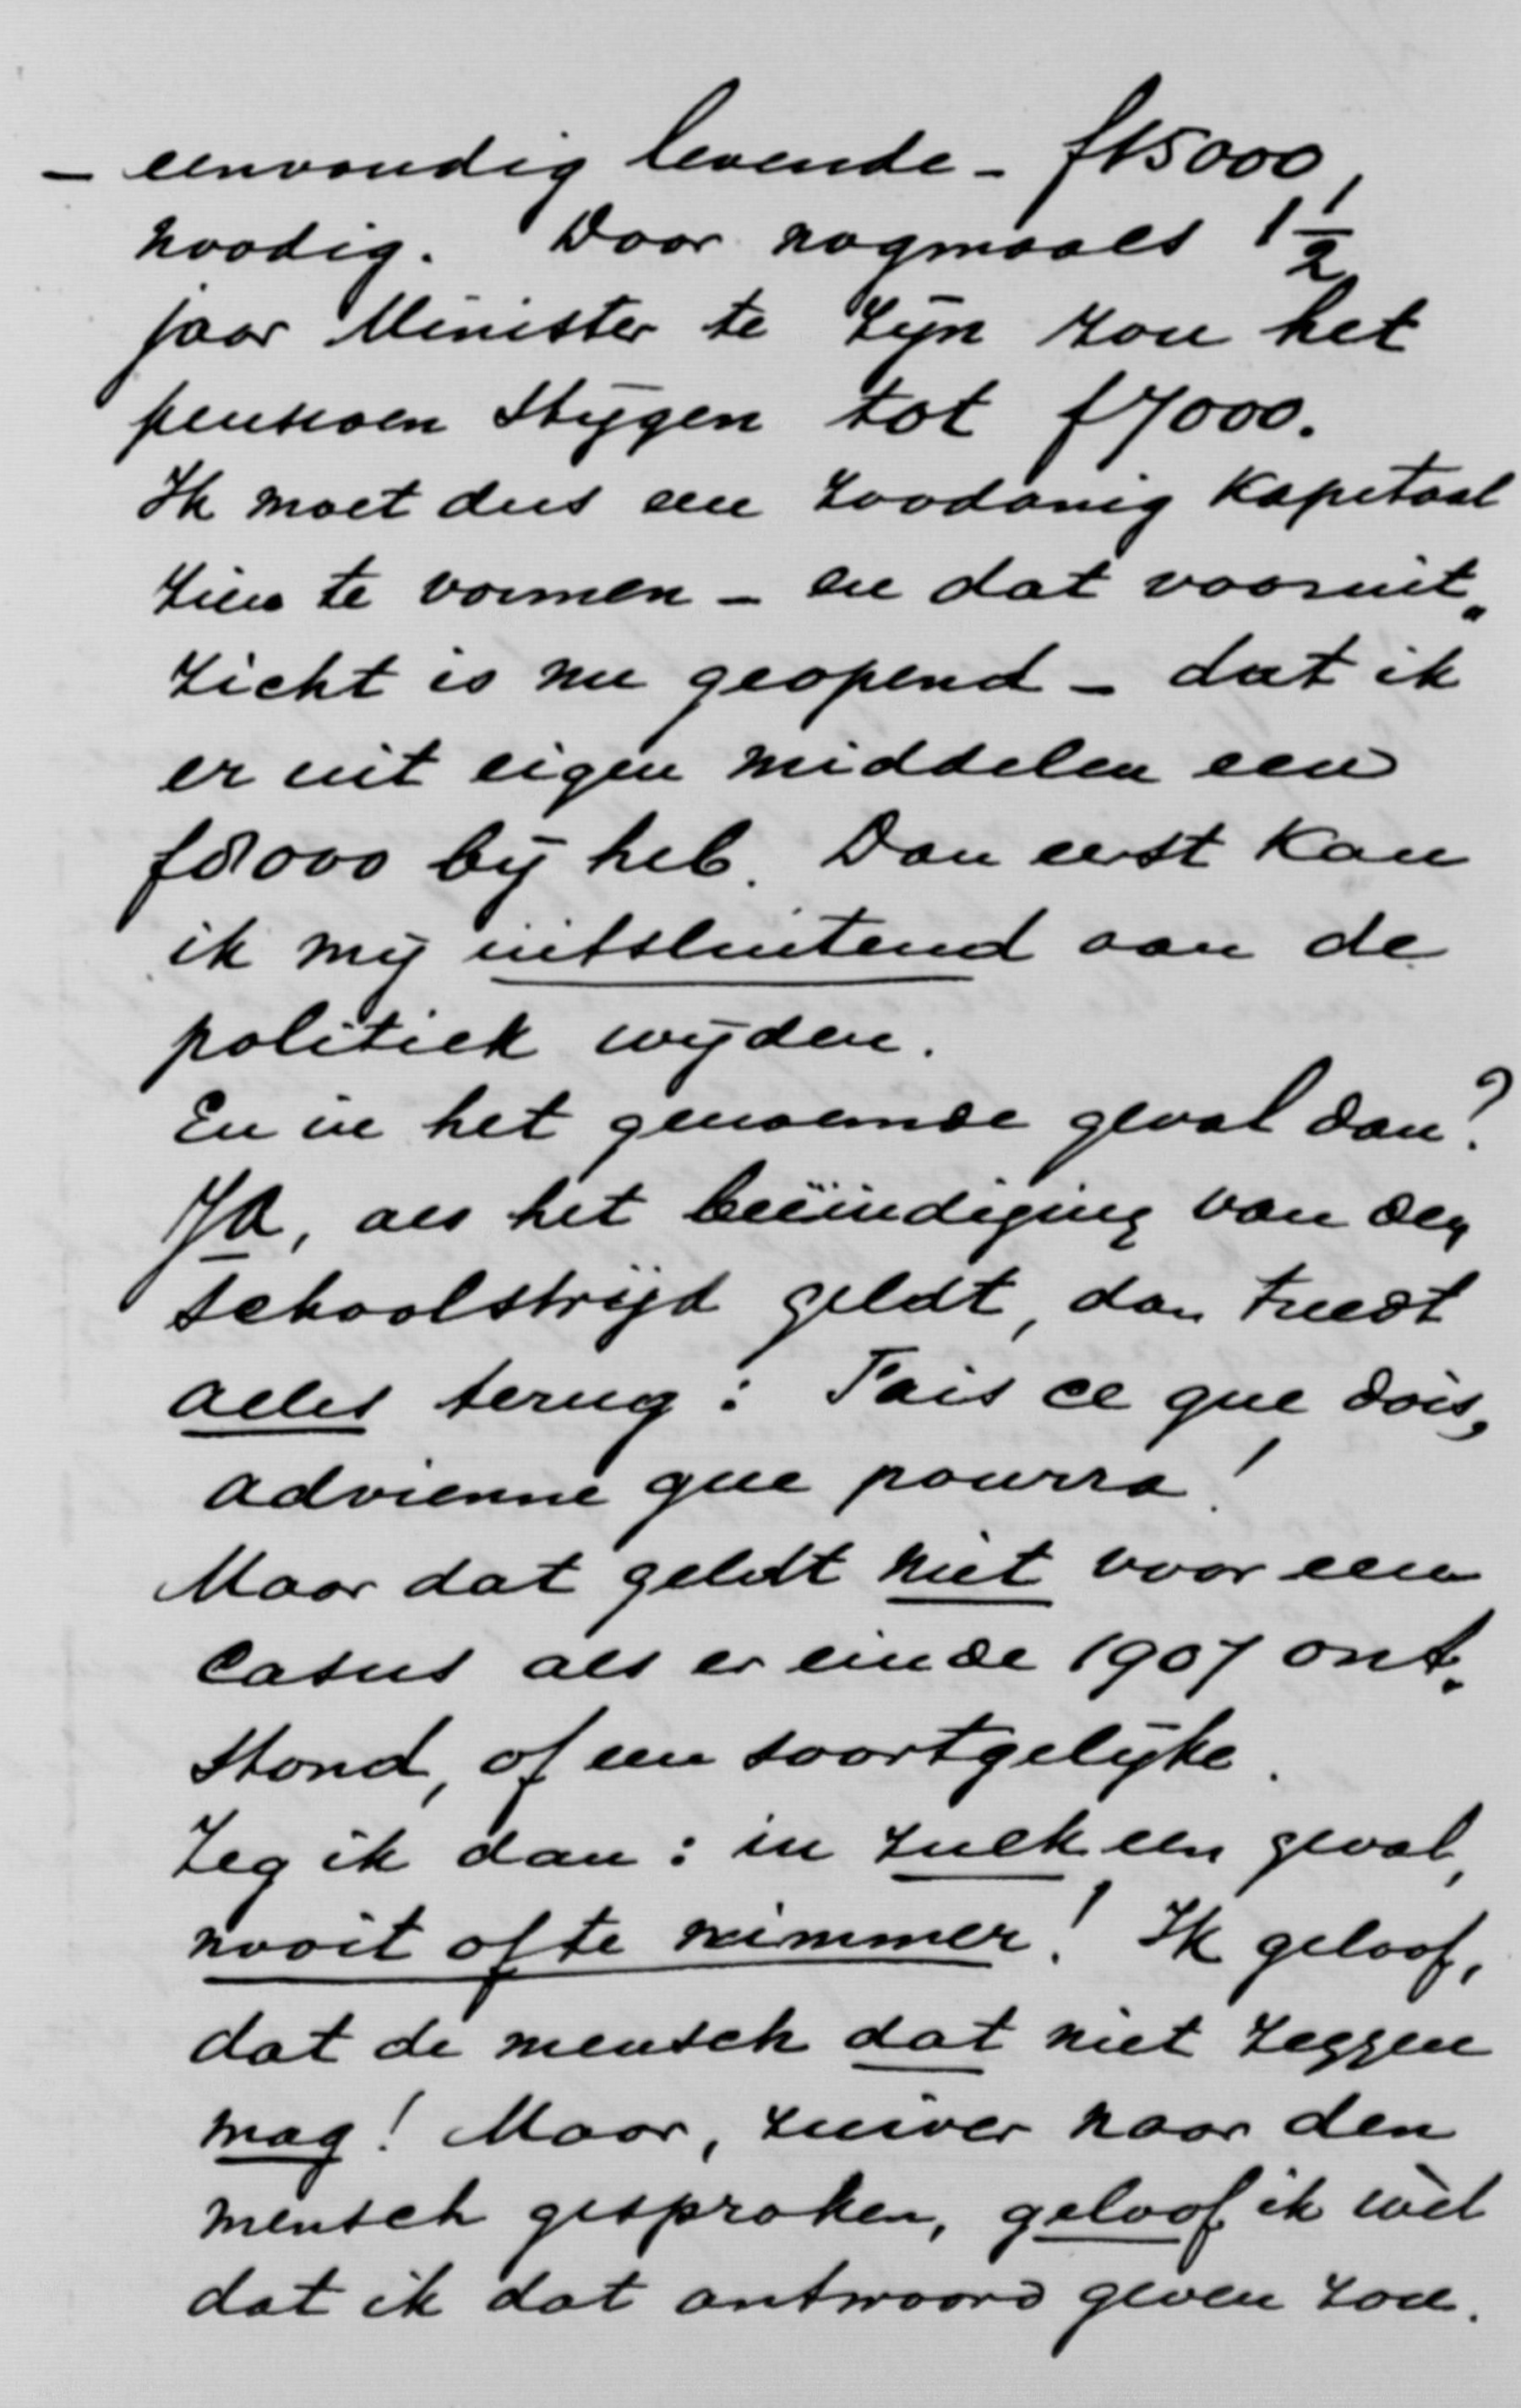 – eenvoudig levende – f15000,
noodig. Door nogmaals 1 1/2
jaar Minister te zijn zou het
pensioen stijgen tot f7000.
Ik moet dus een zoodanig kapitaal
zien te vormen – en dat vooruit„
zicht is nu geopend – dat ik
er uit eigen middelen een
f8000 bij heb. Dan eerst kan
ik mij uitsluitend aan de
politiek wijden.
En in het genoemde geval dan?
Ja, als het beëindiging van den
schoolstrijd geldt, dan treedt
alles terug: Fais ce que dois,
advienne que pourra!
Maar dat geldt niet voor een
casus als er einde 1907 ont„
stond, of een soortgelijke.
Zeg ik dan: in zulk een geval,
nooit ofte nimmer! Ik geloof,
dat de mensch dat niet zeggen
mag! Maar, zuiver naar den
mensch gesproken, geloof ik wèl
dat ik dat antwoord geven zou.